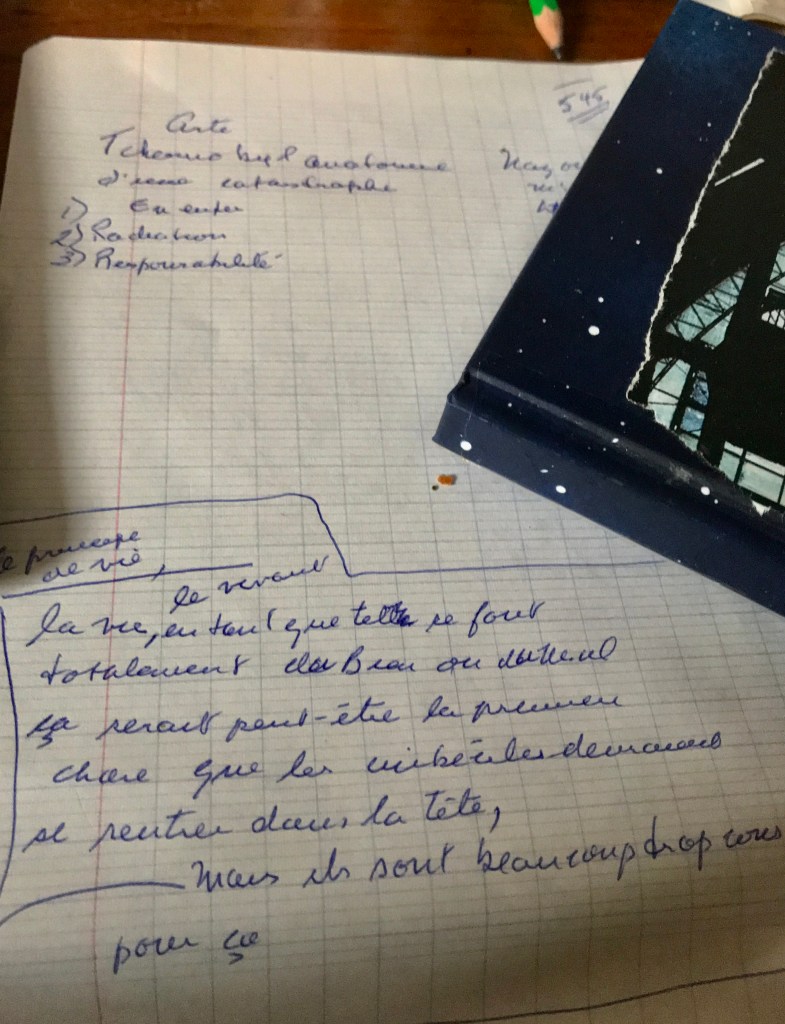 545
Arte
Tchernobyl anatomie
d'une catastrophe
1) En enfer
2) Radiation
3) Responsabilité
le principe
de vie,
le vivant
la vie, en tant que telle se fout
totalement du Bien ou du Mal
ça serait peut-être la première
chose que les imbéciles devraient
se rentrer dans la tête,
Mais ils sont beaucoup trop cons
pour ça